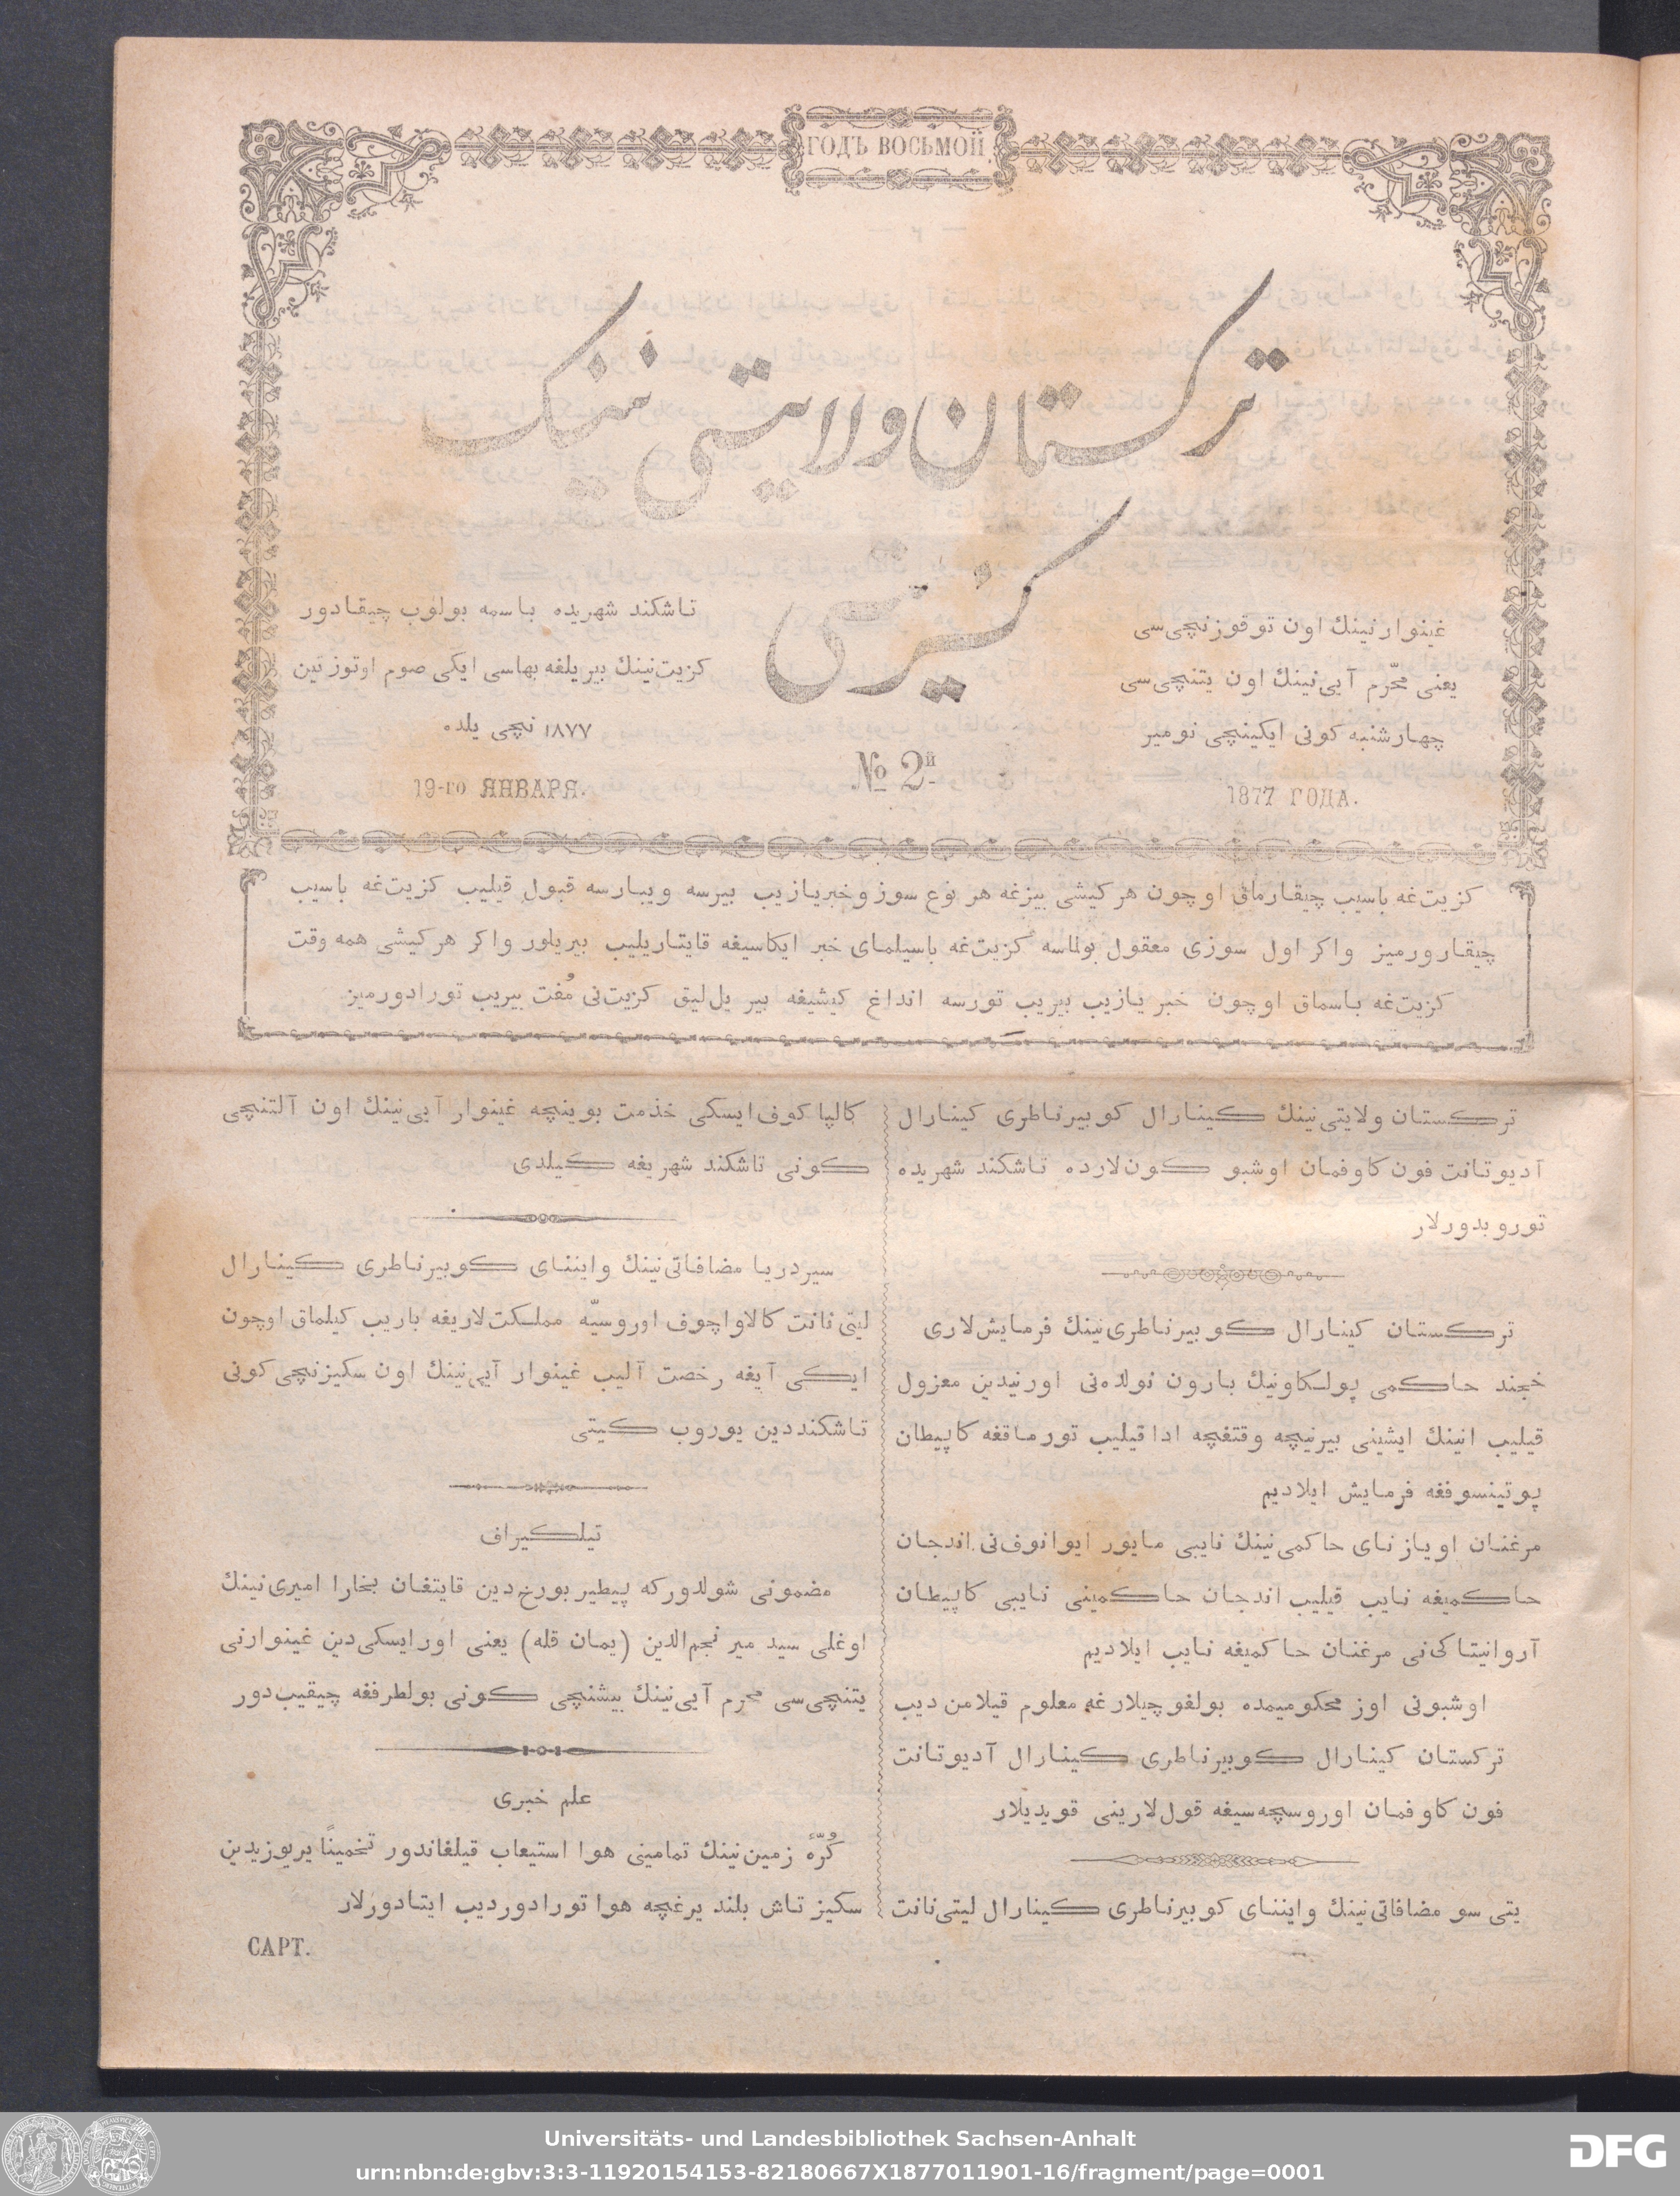 ГОДЪ ВОСЬМОЙ.
ترکستان ولایتی نینک
کزیتی
غینوار نینك اون توقوزنچی‌سی
یعنی محرّم آیی‌نینك اون یتنچی‌سی
چهارشنبه کونی ایکینچی نومیر
1877 ГОДА.
№ 2й
تاشکند شهریده باسمه بولوب چیقادور
کزیت‌نینك بیر یلغه بهاسی ایکی صوم اوتوز تین
۱۸۷۷ نچی یلده
19-го ЯНВАРЯ.
کزیت‌غه باسیب چیقارماق اوچون هر کیشی بیزغه هر نوع سوز و خبر یازیب بیرسه ویبارسه قبول قیلیب کزیت‌غه باسیب
چیقارورمیز واکر اول سوزی معقول بولماسه کزیت‌غه باسیلمای خبر ایکاسیغه قایتاریلیب بیریلور واکر هر کیشی همه وقت
کزیت‌غه باسماق اوچون خبر یازیب بیریب تورسه انداغ کیشیغه بیر یل‌لیق کزیت‌نی مُفت بیریب تورادورمیز
ترکستان ولایتی‌نینك کینارال کوبیرناطری کینارال
آدیوتانت فون کاوفمان اوشبو کون‌لارده تاشکند شهریده
توروبدورلار
ترکستان کینارال کوبیرناطری‌نینك فرمایش‌لاری
خجند حاکمی پولکاونیك بارون نولده‌نی اورنیدین معزول
قیلیب انینك ایشینی بیرنیچه وقتغچه ادا قیلیب تورماقغه کاپیطان
پوتینسوفغه فرمایش ایلادیم
مرغنان اویازنای حاکمی‌نینك نایبی مایور ایوانوف‌نی اندجان
حاکمیغه نایب قیلیب اندجان حاکمینی نایبی کاپیطان
آروانیتاکی‌نی مرغنان حاکمیغه نایب ایلادیم
اوشبونی اوز محکومیمده بولغوچیلارغه معلوم قیلامن دیب
ترکستان کینارال کوبیرناطری کینارال آدیوتانت
فون کاوفمان اوروسچه‌سیغه قول‌لارینی قویدیلار
یتی سو مضافاتی‌نینك وایننای کوبیرناطری کینارال لیتی‌نانت
کالپاکوف ایسکی خذمت بوینچه غینوار آیی‌نینك اون آلتنچی
کونی تاشکند شهریغه کیلدی
سیردریا مضافاتی‌نینك وایننای کوبیرناطری کینارال
لیتی‌نانت کالاواچوف اوروسیّه مملکت‌لاریغه باریب کیلماق اوچون
ایکی آیغه رخصت آلیب غینوار آیی‌نینك اون سکیزنچی کونی
تاشکنددین یوروب کیتی
تیلکیراف
مضمونی شولدورکه پیطیربورخ‌دین قایتغان بخارا امیری‌نینك
اوغلی سید میر نجم‌الدین (یمان قله) یعنی اور ایسکی‌دین غینوارنی
یتنچی‌سی محرم آیی‌نینك بیشنچی کونی بولطرفغه چیقیب‌دور
علم خبری
کُرّهٔ زمین‌نینك تمامینی هوا استیعاب قیلغاندور تخمیناً یریوزیدین
سکیز تاش بلند یرغچه هوا تورادور دیب ایتادورلار
САРТ.
Universitäts- und Landesbibliothek Sachsen-Anhalt
urn:nbn:de:gbv:3:3-11920154153-82180667X1877011901-16/fragment/page=0001
DFG